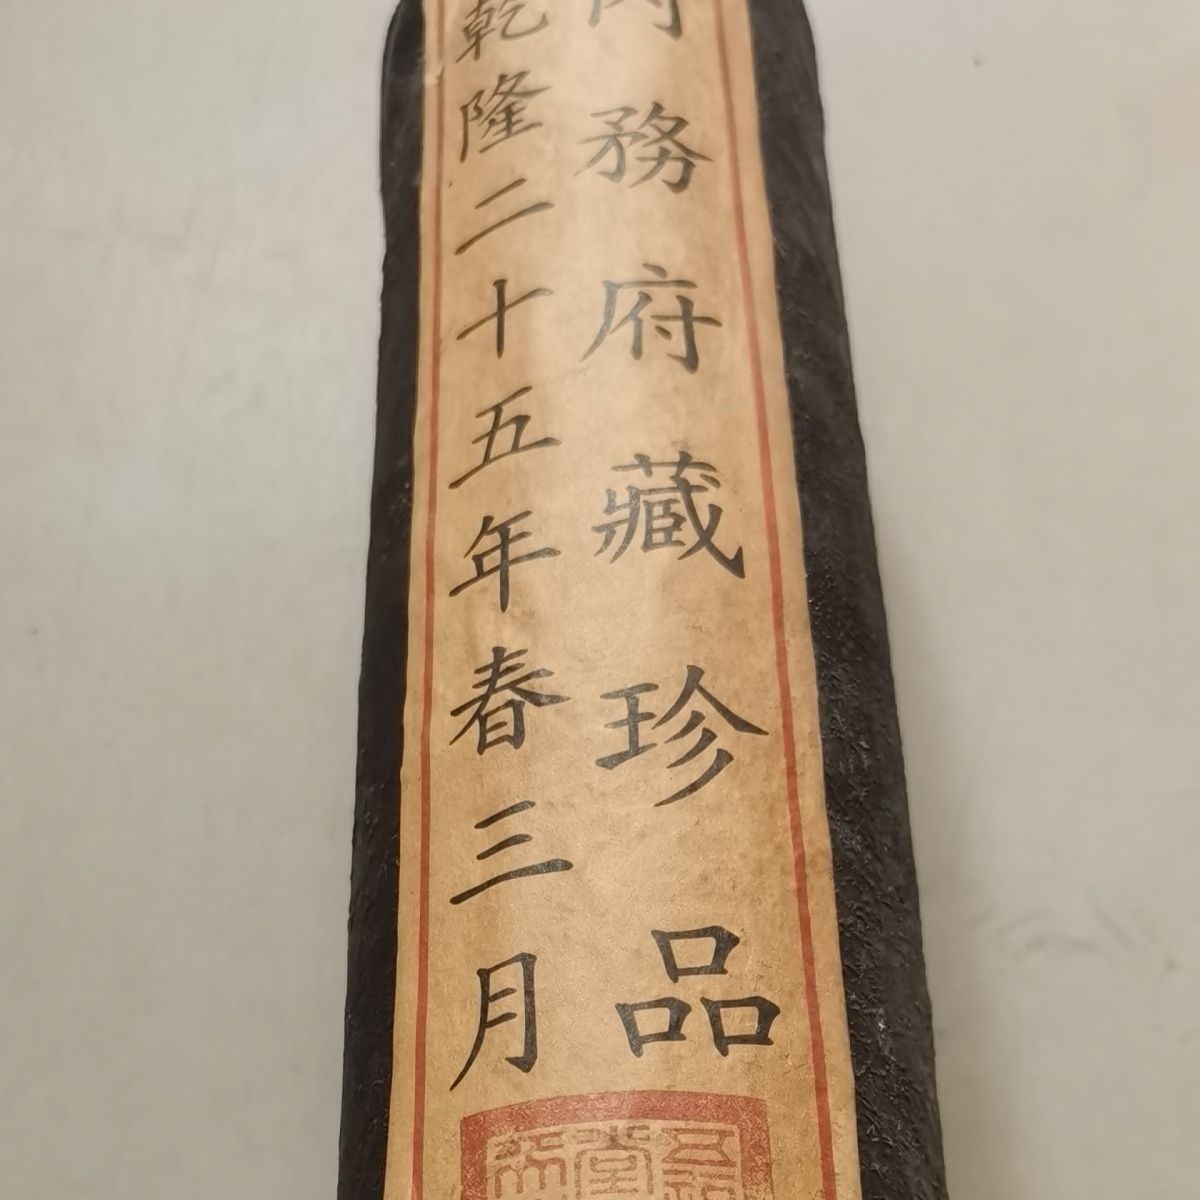 內務府藏珍品
乾隆二十五年春三月